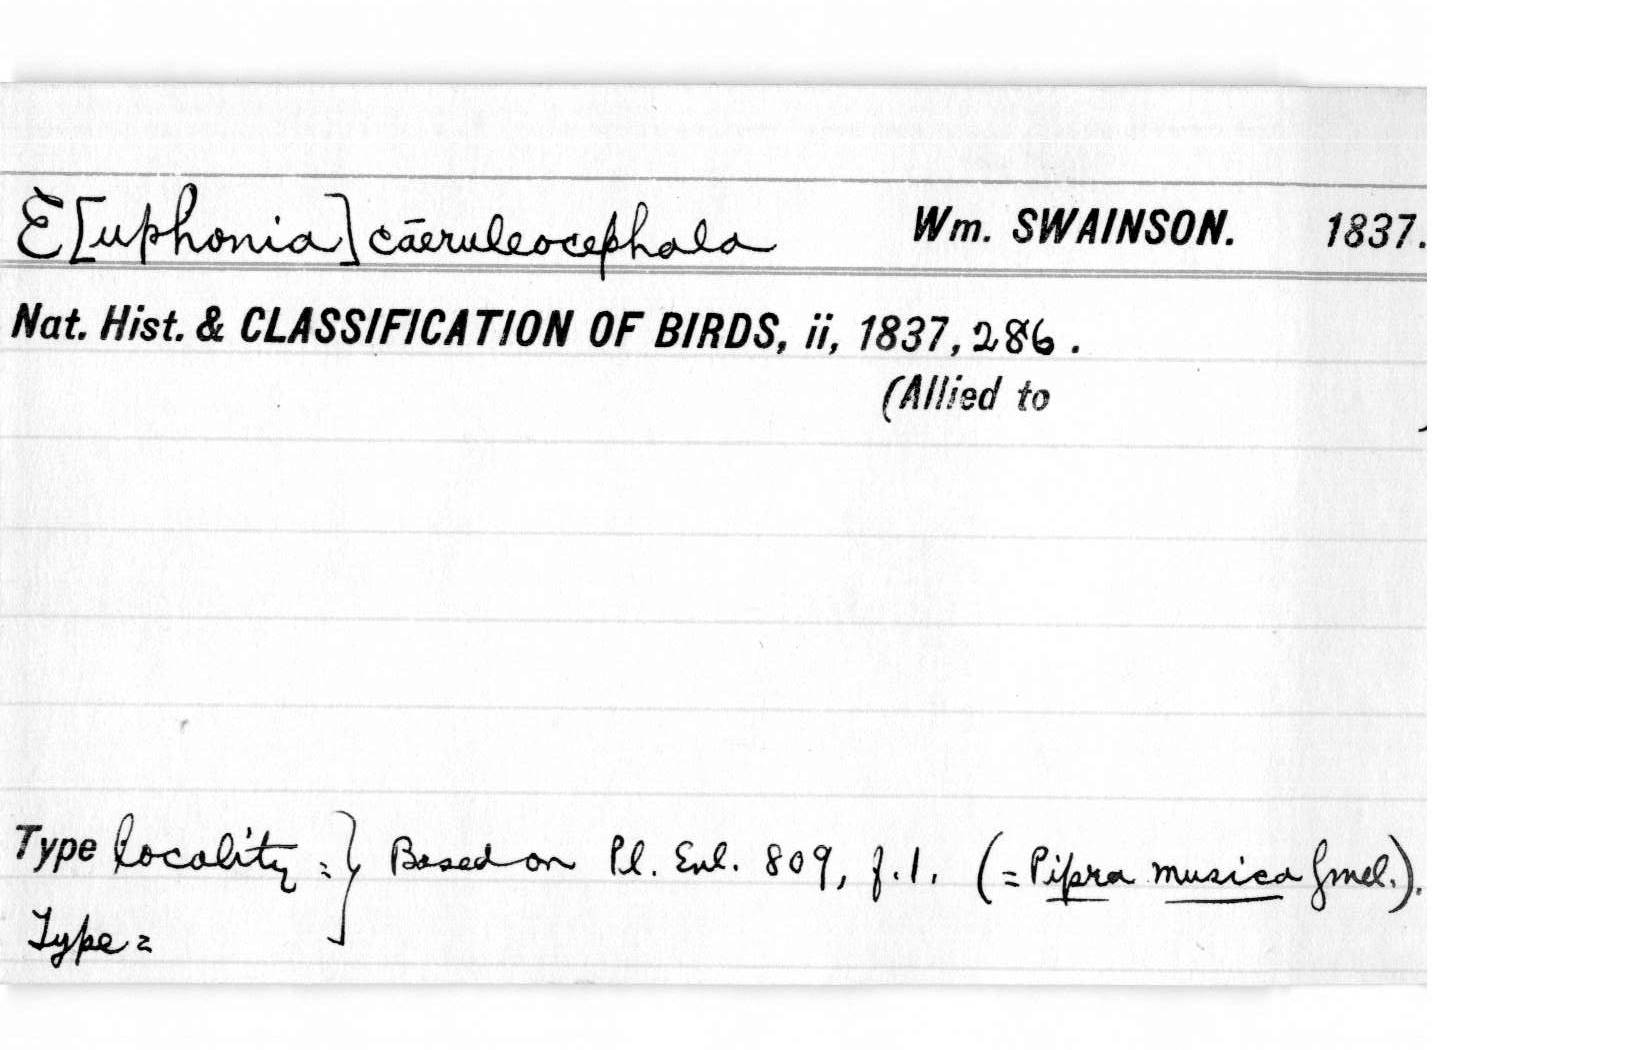 E[uphonia] cāeruleocephala Wm. SWAINSON. 1837.
Nat. Hist. & CLASSIFICATION OF BIRDS, ii, 1837, 286.
(Allied to )
Type locality = } Based on Pl. Enl. 809, f. 1. (= Pipra musica Gmel.).
Type =